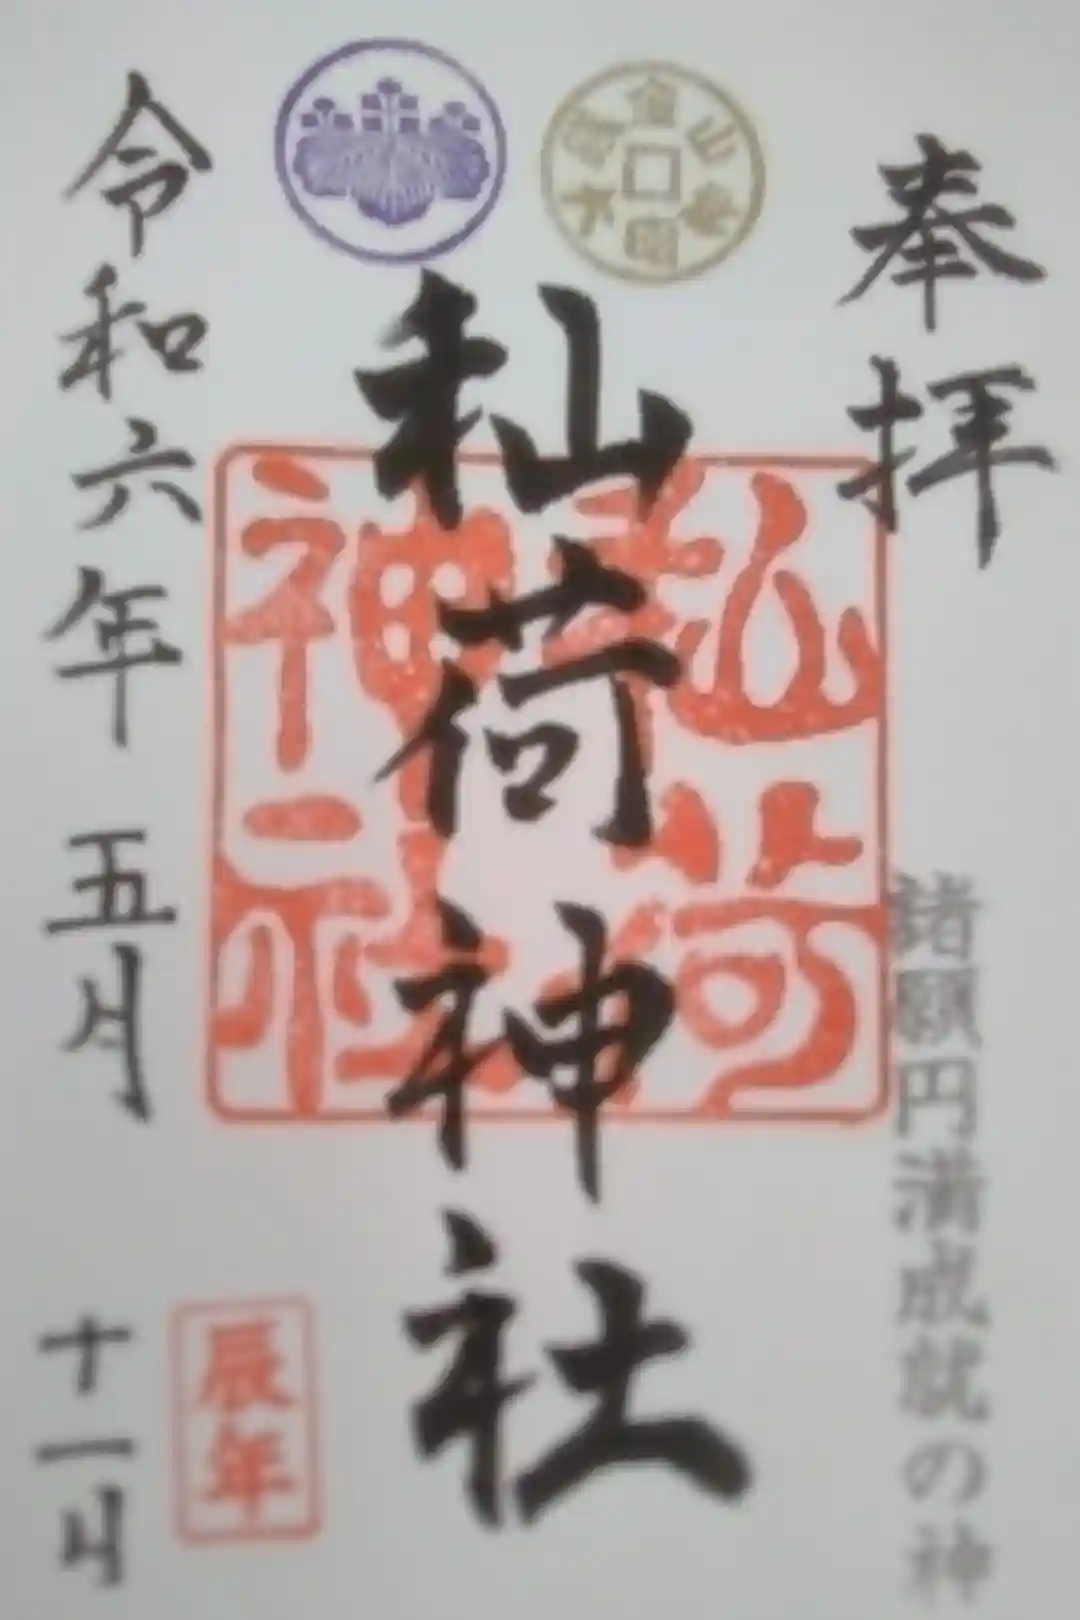 奉拝
諸願円満成就の神
秈荷神社
秈荷
神社
令和六年五月十一日
辰年